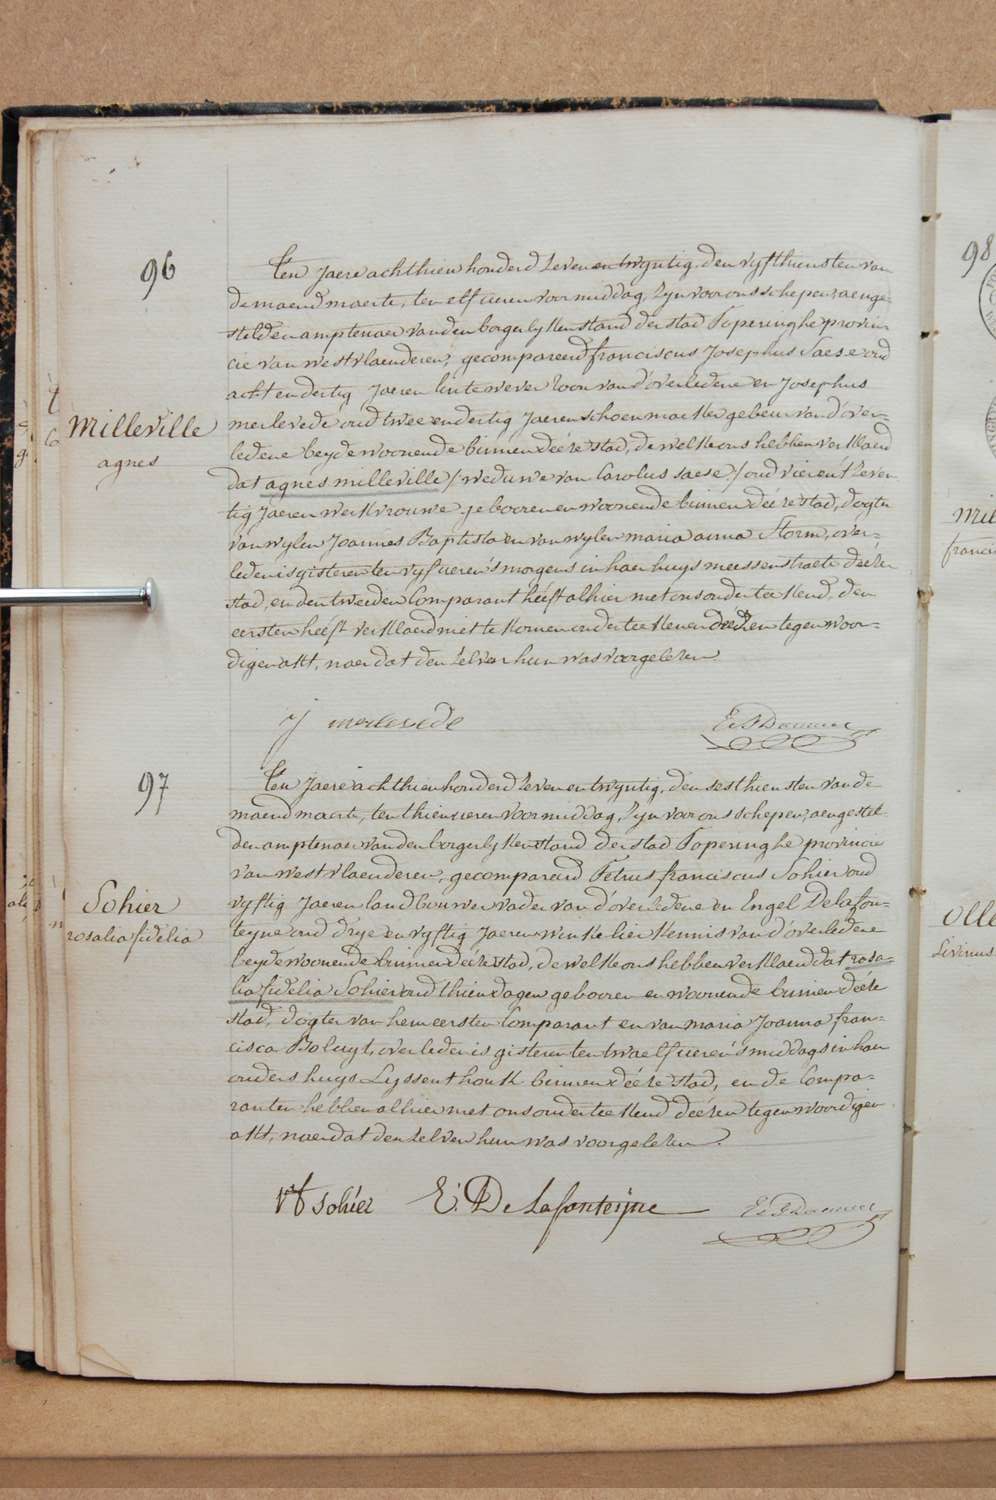 96
Milleville
agnes
Ten Jaere achthien honderd Zeven en twijntig, den vyfthiensten van
de maend maerte, ten elf ueren voormiddag, Zyn voor ons schepen, aenge-
stelden amptenaer van den borgerlyken stand der stad Poperinghe provin-
cie van westvlaenderen, gecompareerd franciscus Josephus Saese oud
acht en dertig Jaeren lintewever Zoon van d'overledene en Josephus
merlevede oud twee en dertig Jaeren schoenmaeker gebeur van d'over-
ledene beyde woonende binnen déeze stad, de welke ons hebben verklaerd
dat agnes milleville / weduwe van Carolus saese / oud vier en Zeven-
tig Jaeren werkvrouwe gebooren en woonende binnen déeze stad, dogter
van wylen Joannes Baptista en van wylen maria anna Storm, over-
leden is gisteren ten vyf ueren s'morgens in haer huys meessenstraete déezer
stad, en den tweeden Comparant heéft alhier met ons onderteekend, den
eersten heéft verklaerd niet te konnen onderteekenen déezen tegenwoor-
digen akt, naer dat den Zelven hun was voorgelezen
J merlevede
97
Sohier
rosalia fidelia
Ten Jaere achthien honderd Zeven en twijntig, den sesthiensten van de
maend maerte, ten thien ueren voormiddag, Zyn voor ons schepen, aengestel-
den amptenaer van den borgerlyken stand der stad Poperinghe provincie
van westvlaenderen, gecompareerd Petrus franciscus Sohier oud
vyftig Jaeren landbouwer vader van d'overledene en Engel Delafon-
teyne oud drye en vyftig Jaeren winkelier kennis van d'overledene
beyde woonende binnen déeze stad, de welke ons hebben verklaerd dat rosa-
lia fidelia Sohier oud thien dagen gebooren en woonende binnen déeze
stad, dogter van hem eersten Comparant en van maria Joanna fran-
cisca Boluyt, overleden is gisteren ten twaelf ueren s'middags in haer
ouders huys Lyssenthouk binnen déeze stad, en de Compa-
ranten hebben alhier met ons onderteekend déezen tegenwoordigen
akt, naer dat den Zelven hun was voorgelezen.
sohier E. De Lafonteijne
98
francis
Livinus